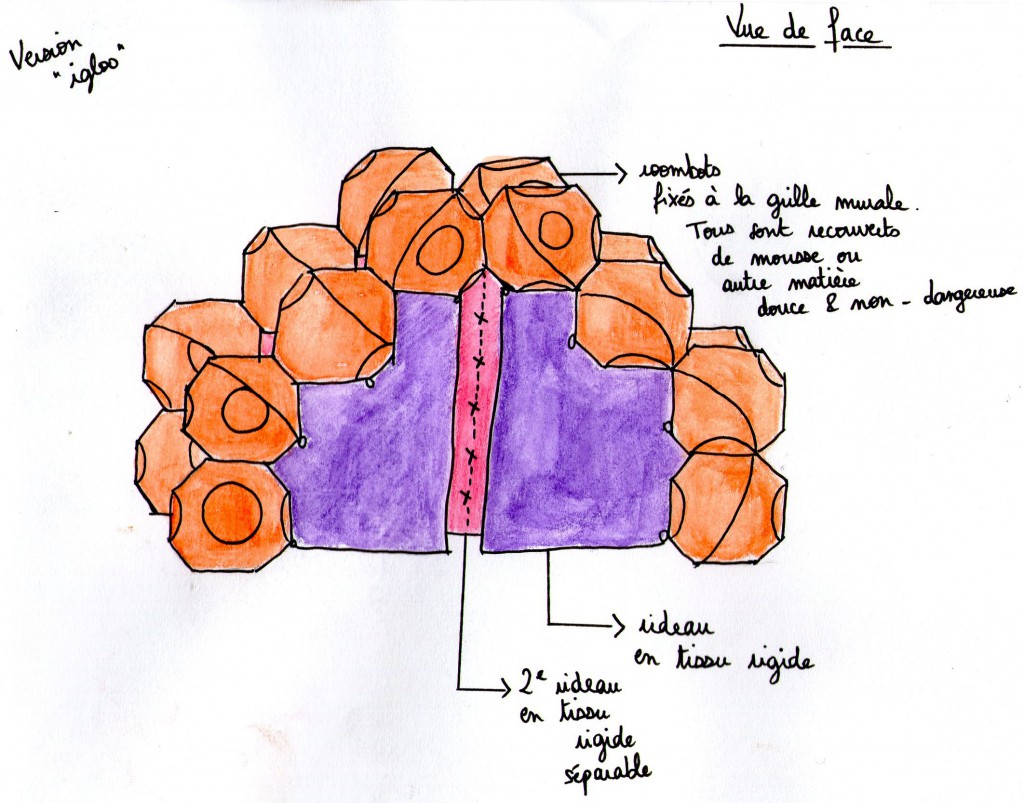 Version
"igloo"
Vue de face
roombots
fixés à la grille murale.
Tous sont recouverts
de mousse ou
autre matière
douce & non-dangereuse
rideau
en tissu rigide
2e rideau
en tissu
rigide
séparable